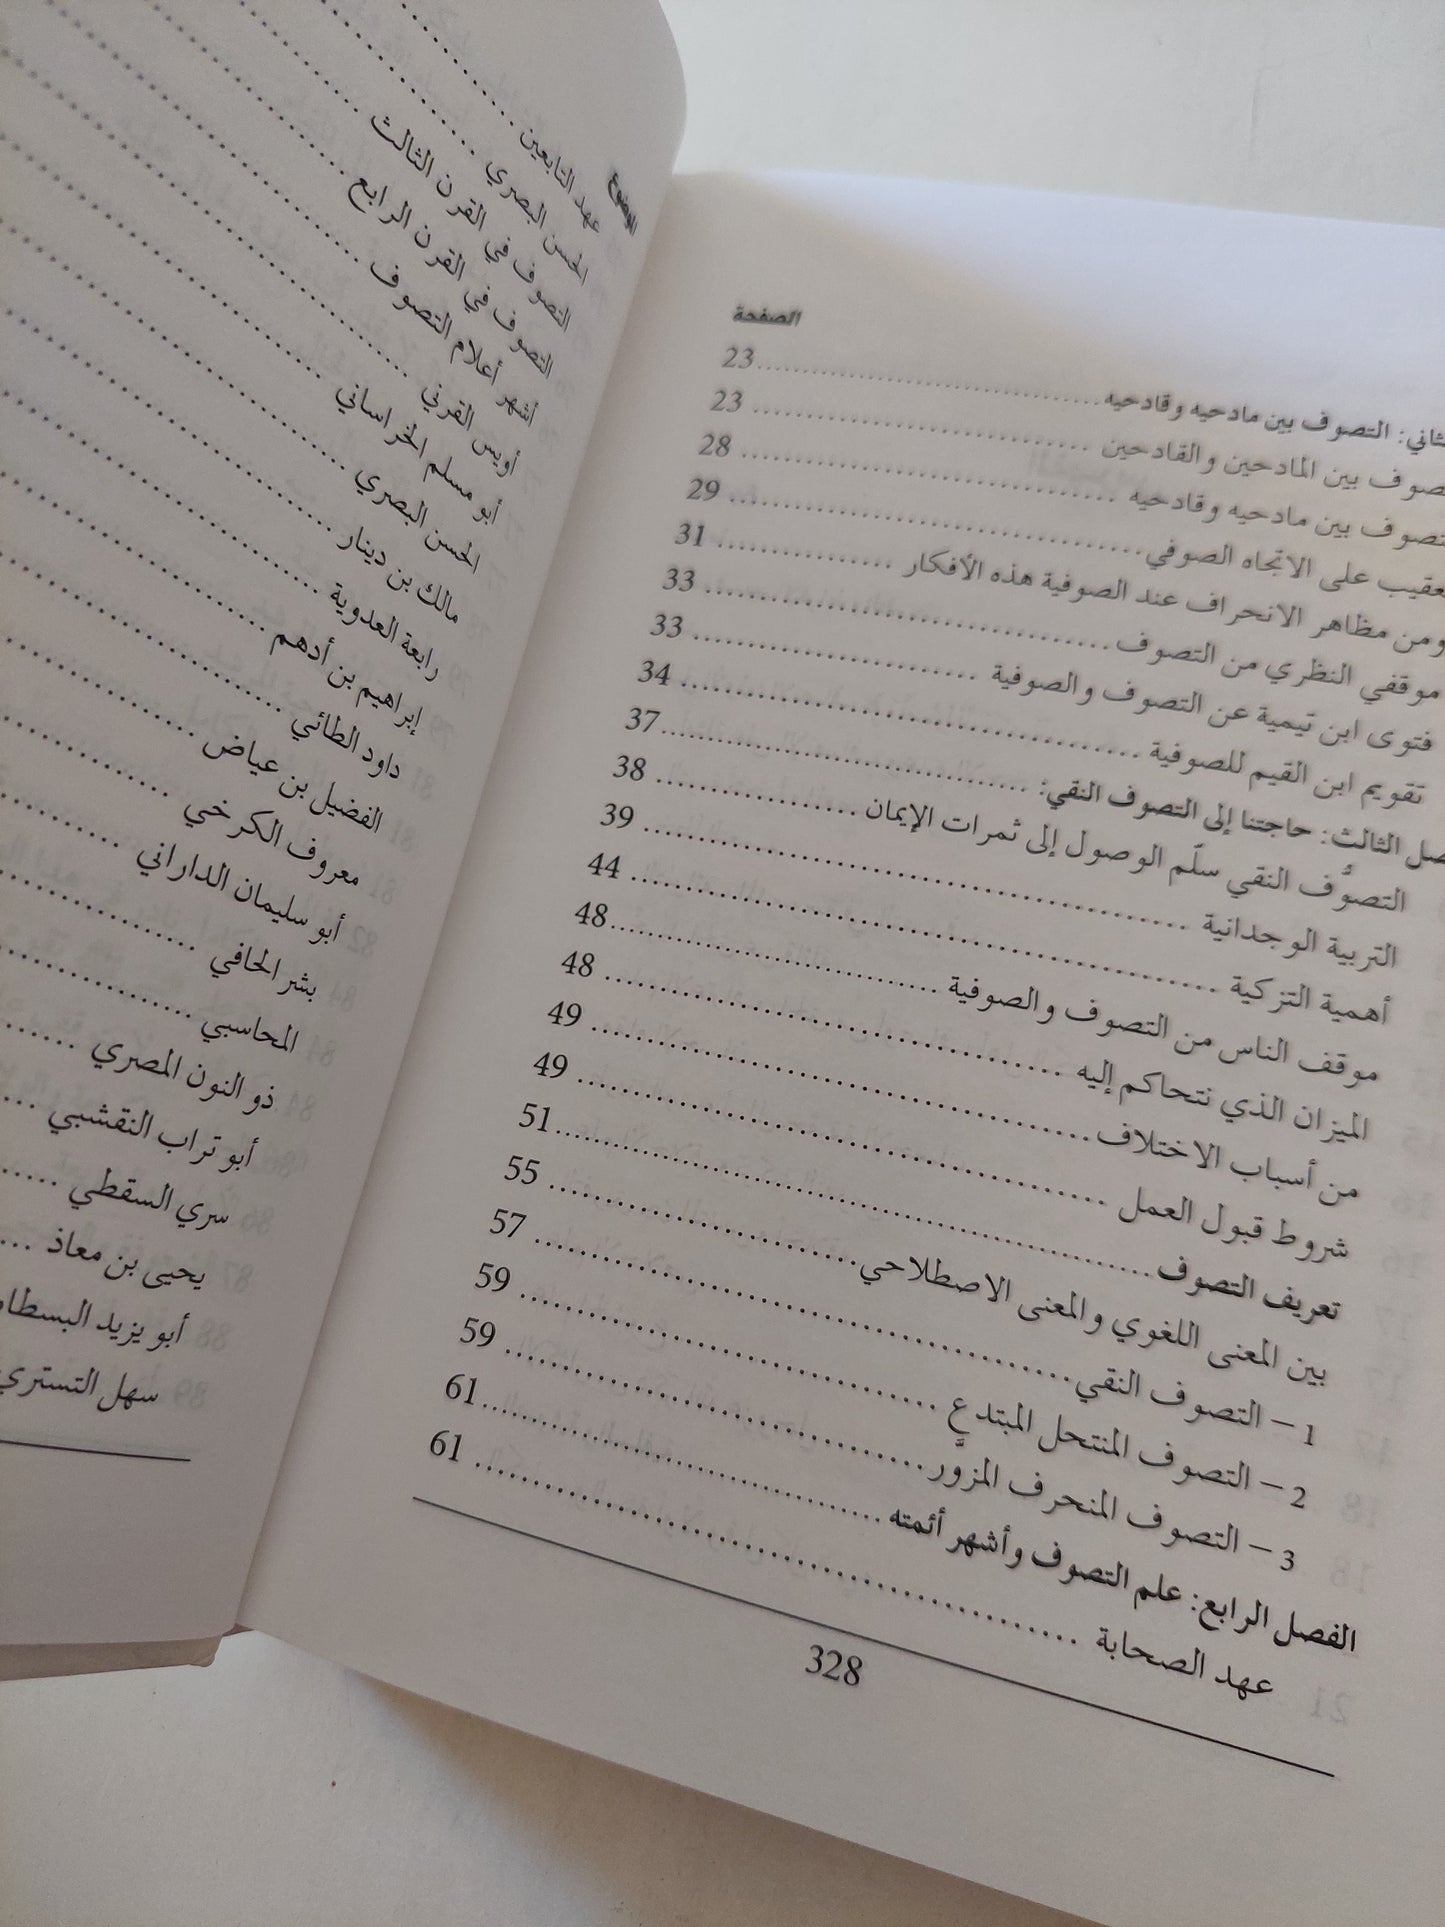 الصفحة
ثاني: التصوف بين مادحيه وقادحيه 23
صوف بين المادحين والقادحين 23
تصوف بين مادحيه وقادحيه 28
عقيب على الاتجاه الصوفي 29
ومن مظاهر الانحراف عند الصوفية هذه الأفكار 31
موقفي النظري من التصوف 33
فتوى ابن تيمية عن التصوف والصوفية 33
تقويم ابن القيم للصوفية 34
صل الثالث: حاجتنا إلى التصوف النقي: 37
التصوُّف النقي سلّم الوصول إلى ثمرات الإيمان 38
التربية الوجدانية 39
أهمية التزكية 44
موقف الناس من التصوف والصوفية 48
الميزان الذي نتحاكم إليه 48
من أسباب الاختلاف 49
شروط قبول العمل 49
تعريف التصوف 51
بين المعنى اللغوي والمعنى الاصطلاحي 55
1 – التصوف النقي 57
2 – التصوف المنتحل المبتدع 59
3 – التصوف المنحرف المزوَّر 59
الفصل الرابع: علم التصوف وأشهر أئمته 61
عهد الصحابة 61
328
الموضوع
عهد التابعين
الحسن البصري
التصوف في القرن الثالث
التصوف في القرن الرابع
أشهر أعلام التصوف
أويس القرني
أبو مسلم الخراساني
الحسن البصري
مالك بن دينار
رابعة العدوية
إبراهيم بن أدهم
داود الطائي
الفضيل بن عياض
معروف الكرخي
أبو سليمان الداراني
بشر الحافي
المحاسبي
ذو النون المصري
أبو تراب النقشبي
سري السقطي
يحيى بن معاذ
أبو يزيد البسطا
سهل التستري